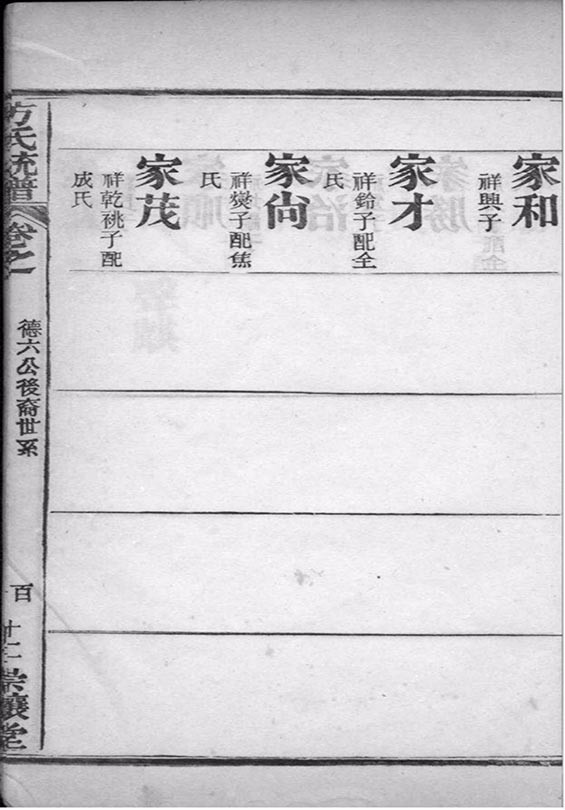 家和
祥興子
家才
祥鈴子配全
氏
家尙
祥爕子配焦
氏
家茂
祥乾祧子配
成氏
方氏統譜
卷之一
德六公後裔世系
百
十二
崇讓堂